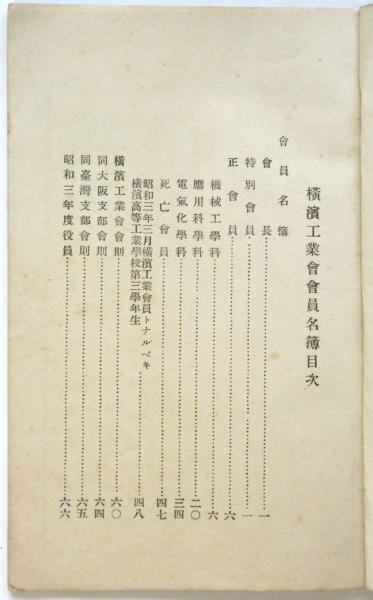 橫濱工業會會員名簿目次
會員名簿
會長……一
特別會員……一
正會員……六
機械工學科……六
應用化學科……二〇
電氣化學科……三四
死亡會員……四七
昭和三年三月橫濱工業會員トナルベキ
橫濱高等工業學校第三學年生……四八
橫濱工業會會則……六〇
同大阪支部會則……六四
同臺灣支部會則……六五
昭和三年度役員……六六